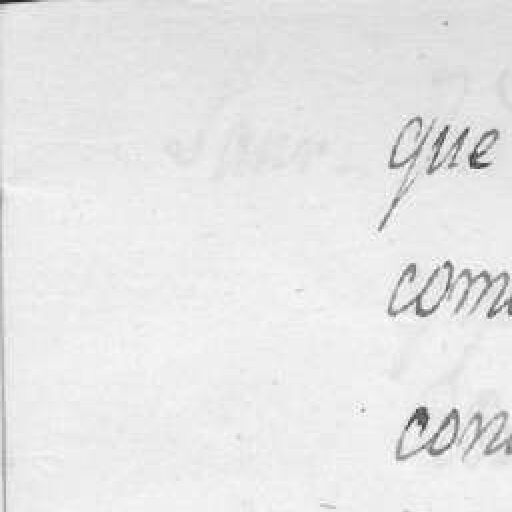 que
com
con